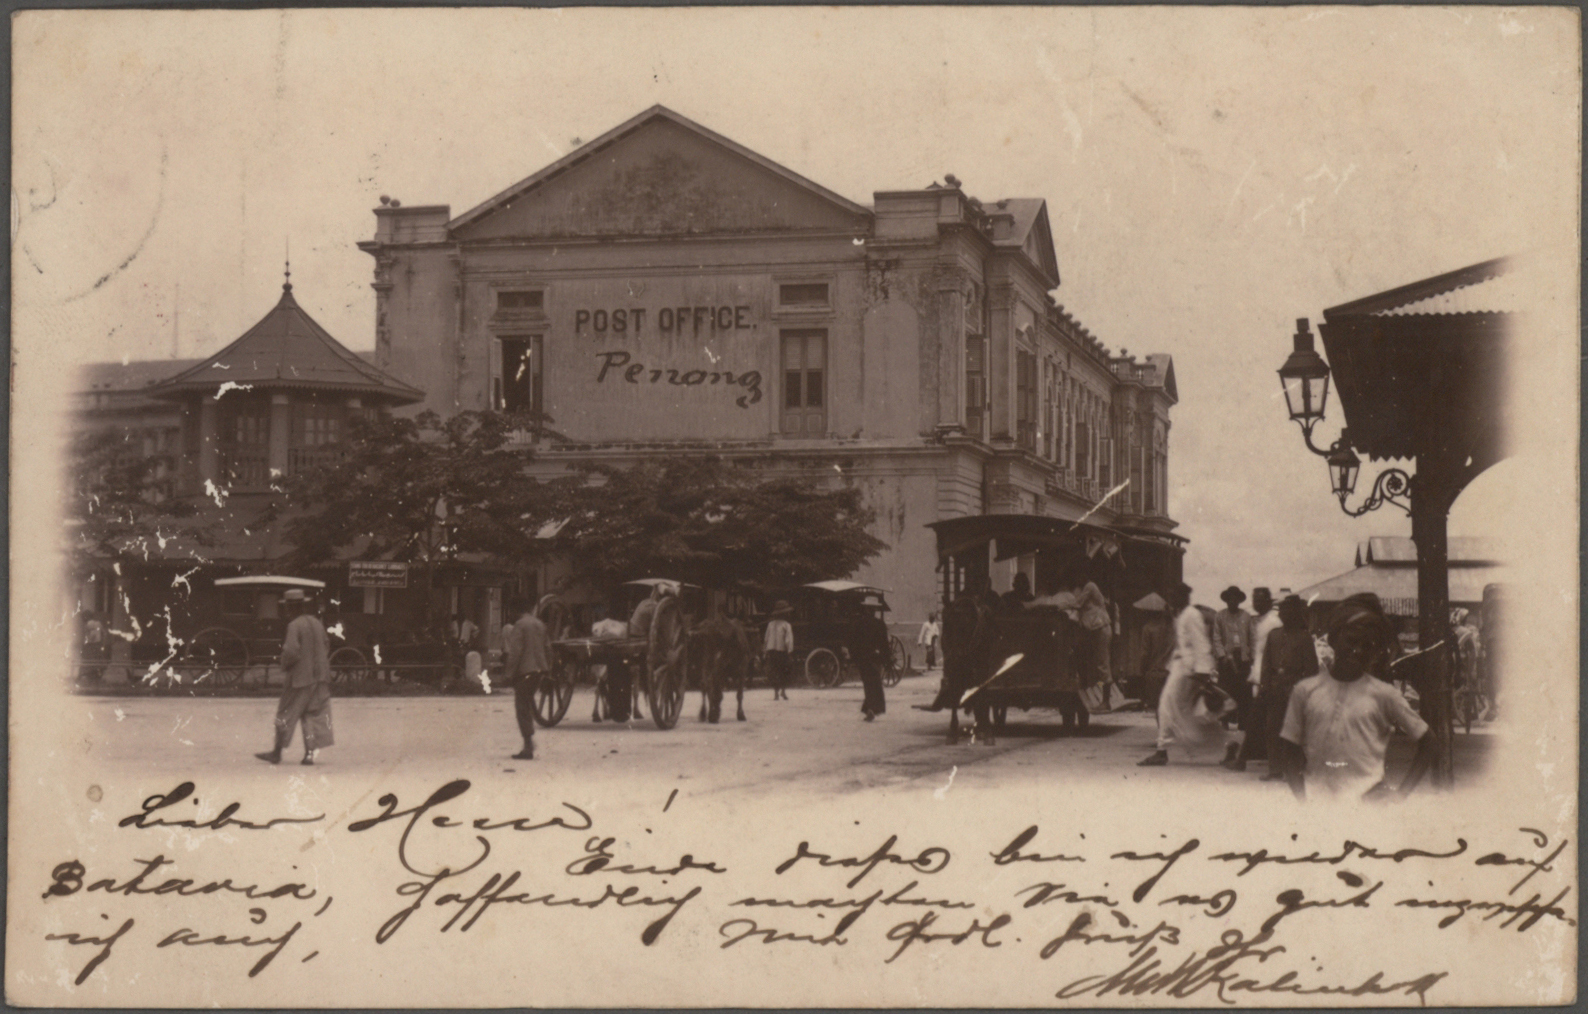 POST OFFICE.
Penang
Lieber Hesse!
Ende dieses bin ich wieder auf
Batavia, hoffendlich machten Sie es gut inzwischen
ich auch,
Mit frdl. Gruß Ihr